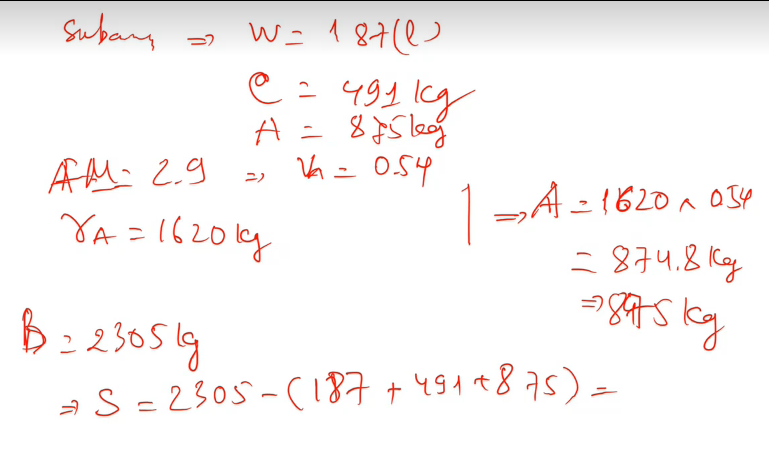 ⇒ W = 187(l)
C = 491 kg
A = 875 kg
FM = 2.9 ⇒ Va = 0.54
γA = 1620 kg
⇒ A = 1620 × 054
= 874.8 kg
⇒ 875 kg
B = 2305 kg
⇒ S = 2305 - (187 + 491 + 875) =